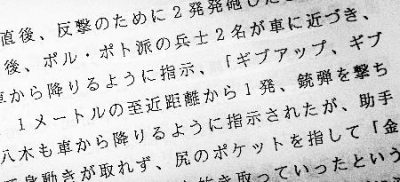 直後、反撃のために２発発砲した
後、ポル・ポト派の兵士２名が車に近づき、
車から降りるように指示、「ギブアップ、ギブ
１メートルの至近距離から１発、銃弾を撃ち
八木も車から降りるように指示されたが、助手
身動きが取れず、尻のポケットを指して「金
取っていったという